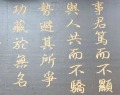 事君篤而不顯
與人共而不驕
勢避其所爭
功藏於無名